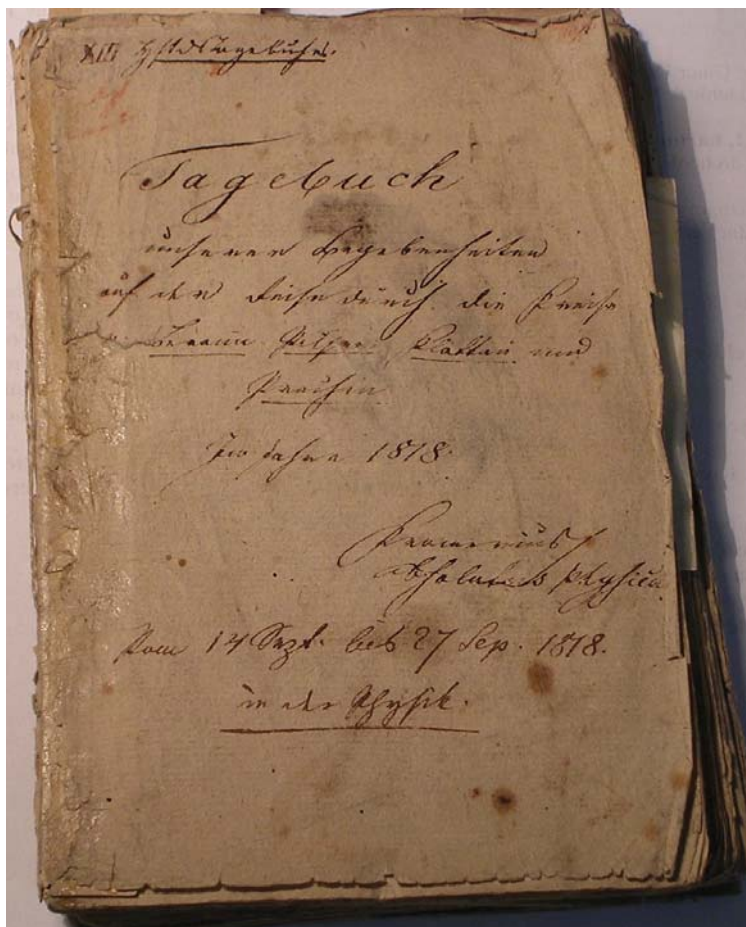 XIII
Tagebuch
unserer Begebenheiten
auf der Reise durch die Kreise
Beraun Pilsen Klattau und
Prachin
Im Jahre 1818.
Physica
Vom 14 Sept. bis 27 Sep. 1818.
in der Physik.